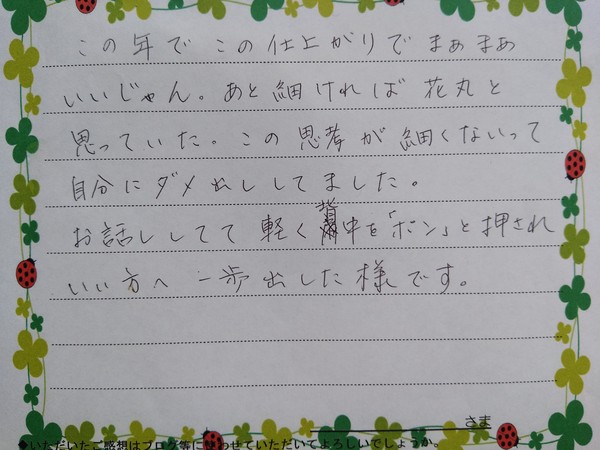 この年でこの仕上がりでまぁまぁ
いいじゃん。あと細ければ花丸と
思っていた。この思考が細くないって
自分にダメ出ししてました。
お話ししてて軽く背中を「ポン」と押され
いい方へ一歩出した様です。
さま
◆いただいたご感想はブログ等に使わせていただいてよろしいでしょうか。